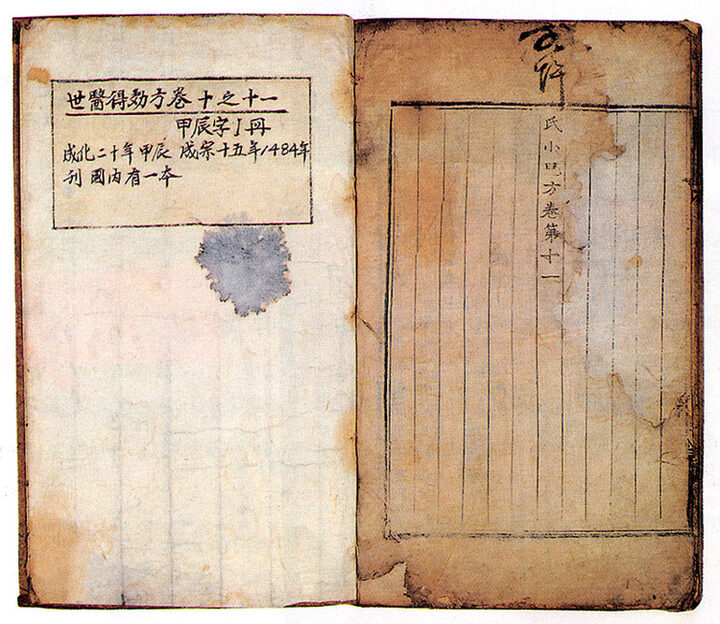 世醫得効方卷十之十一
甲辰字1冊
成化二十年甲辰 成宗十五年1484年
刊 國内有一本
氏小児方卷第十一